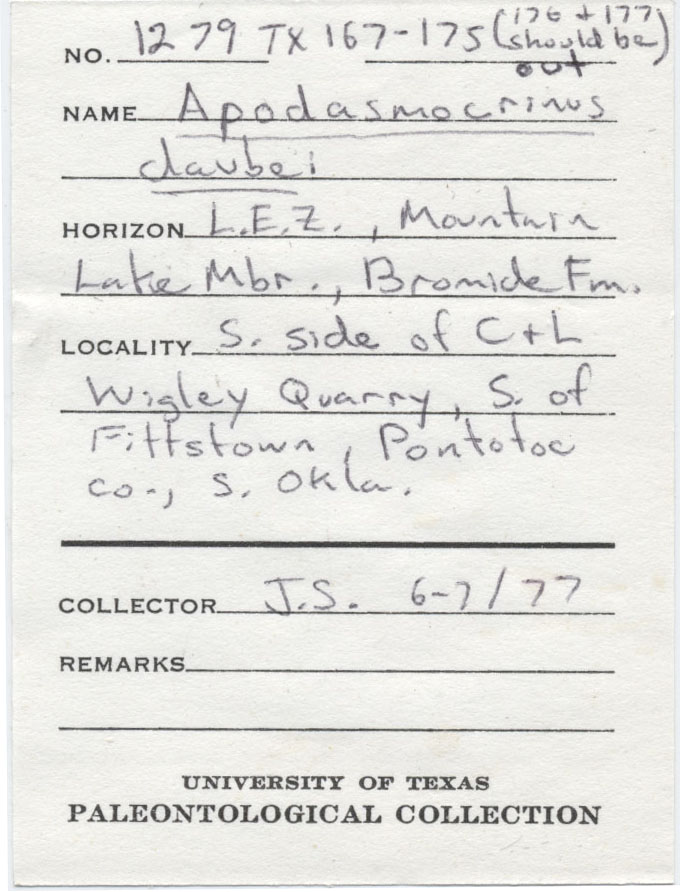 NO. 1279 TX 167-175 (176 + 177 should be out)
NAME Apodasmocrinus
daubei
HORIZON L.E.Z., Mountain
Lake Mbr., Bromide Fm.
LOCALITY S. side of C+L
Wigley Quarry, S. of
Fittstown, Pontotoc
co., S. Okla.
COLLECTOR J.S. 6-7/77
REMARKS
UNIVERSITY OF TEXAS
PALEONTOLOGICAL COLLECTION